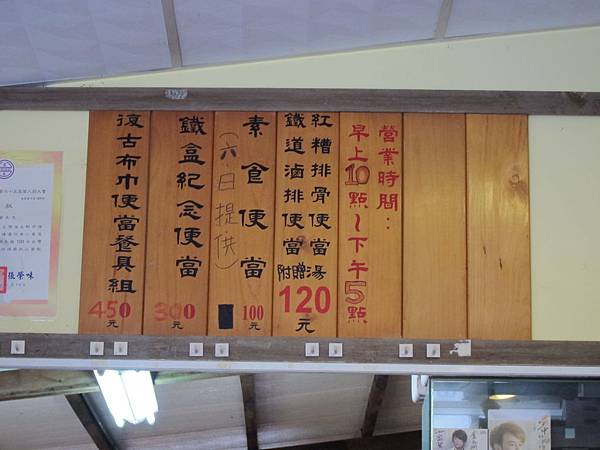 營業時間：
早上10點～下午5點
紅糟排骨便當
鐵道滷排便當
附贈湯
120元
素食便當
（六日提供）
100元
鐵盒紀念便當
300元
復古布巾便當餐具組
450元
張榮味